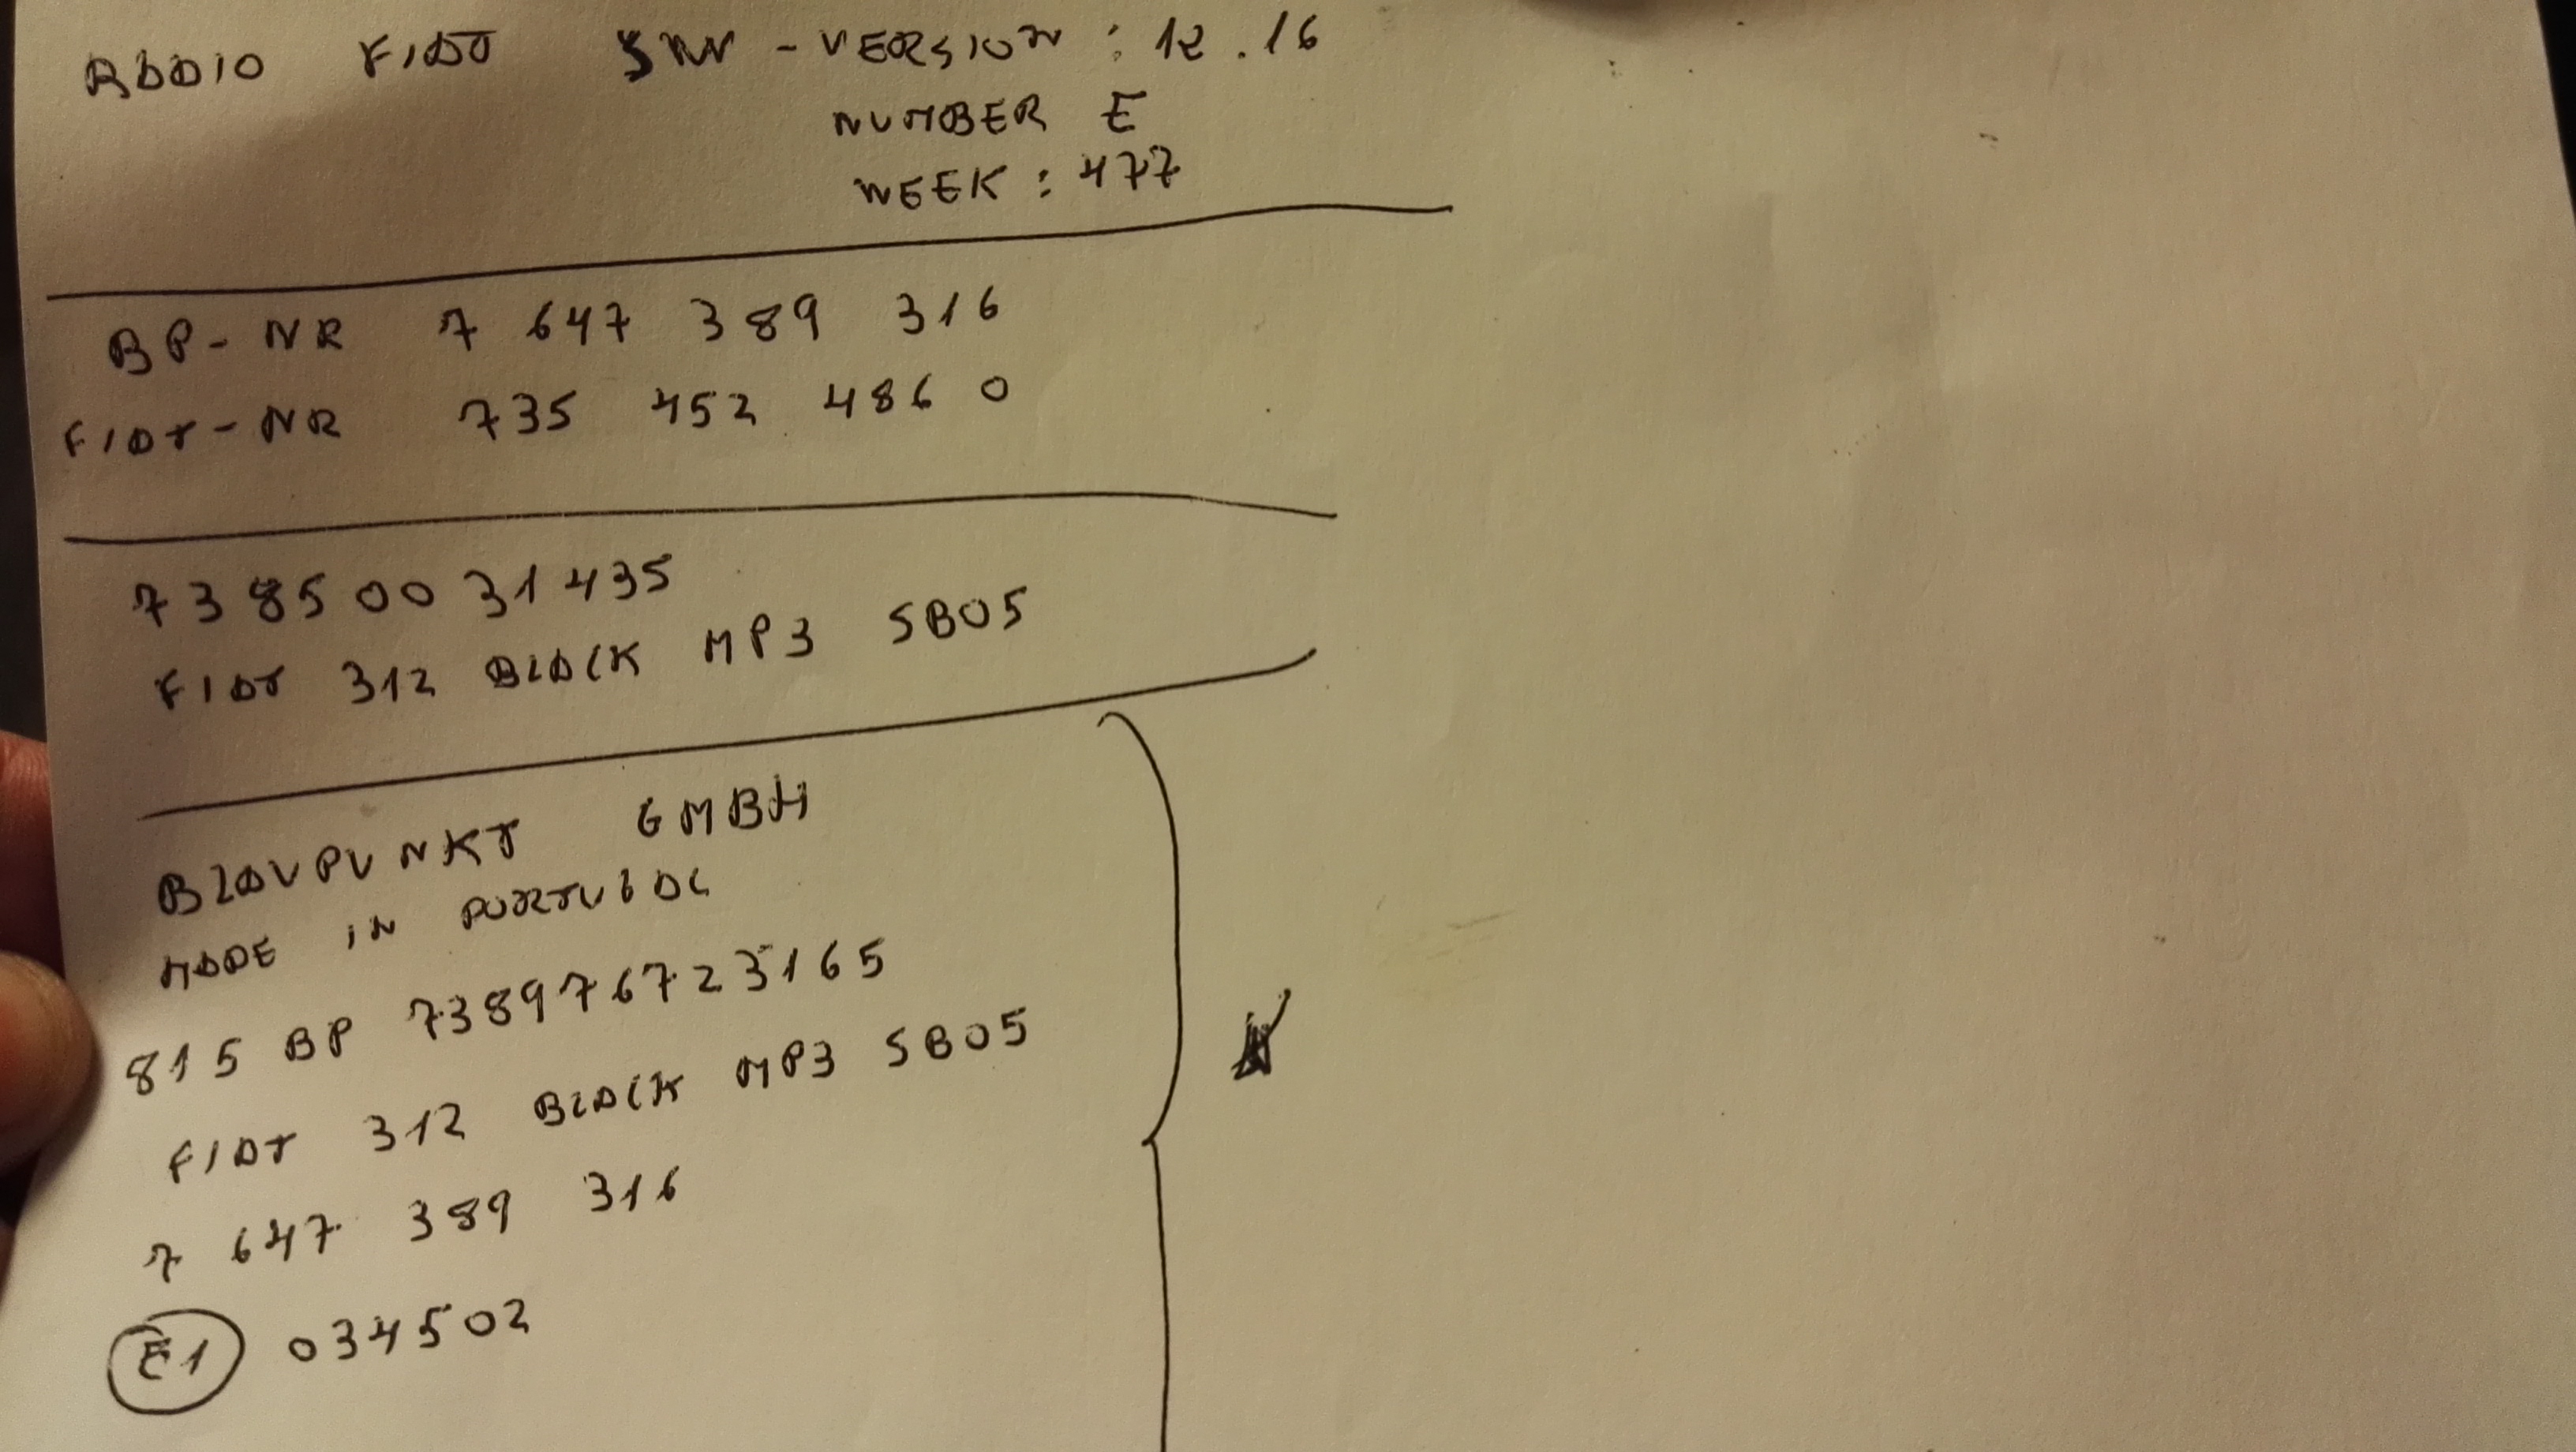 RADIO FIAT SW - VERSION : 12.16
NUMBER E
WEEK : 477
BP - NR 7 647 389 316
FIAT - NR 735 452 486 0
73850031435
FIAT 312 BLACK MP3 SB05
BLAUPUNKT GMBH
MADE IN PORTUGAL
815 BP 738976723165
FIAT 312 BLACK MP3 SB05
7 647 389 316
E1 034502